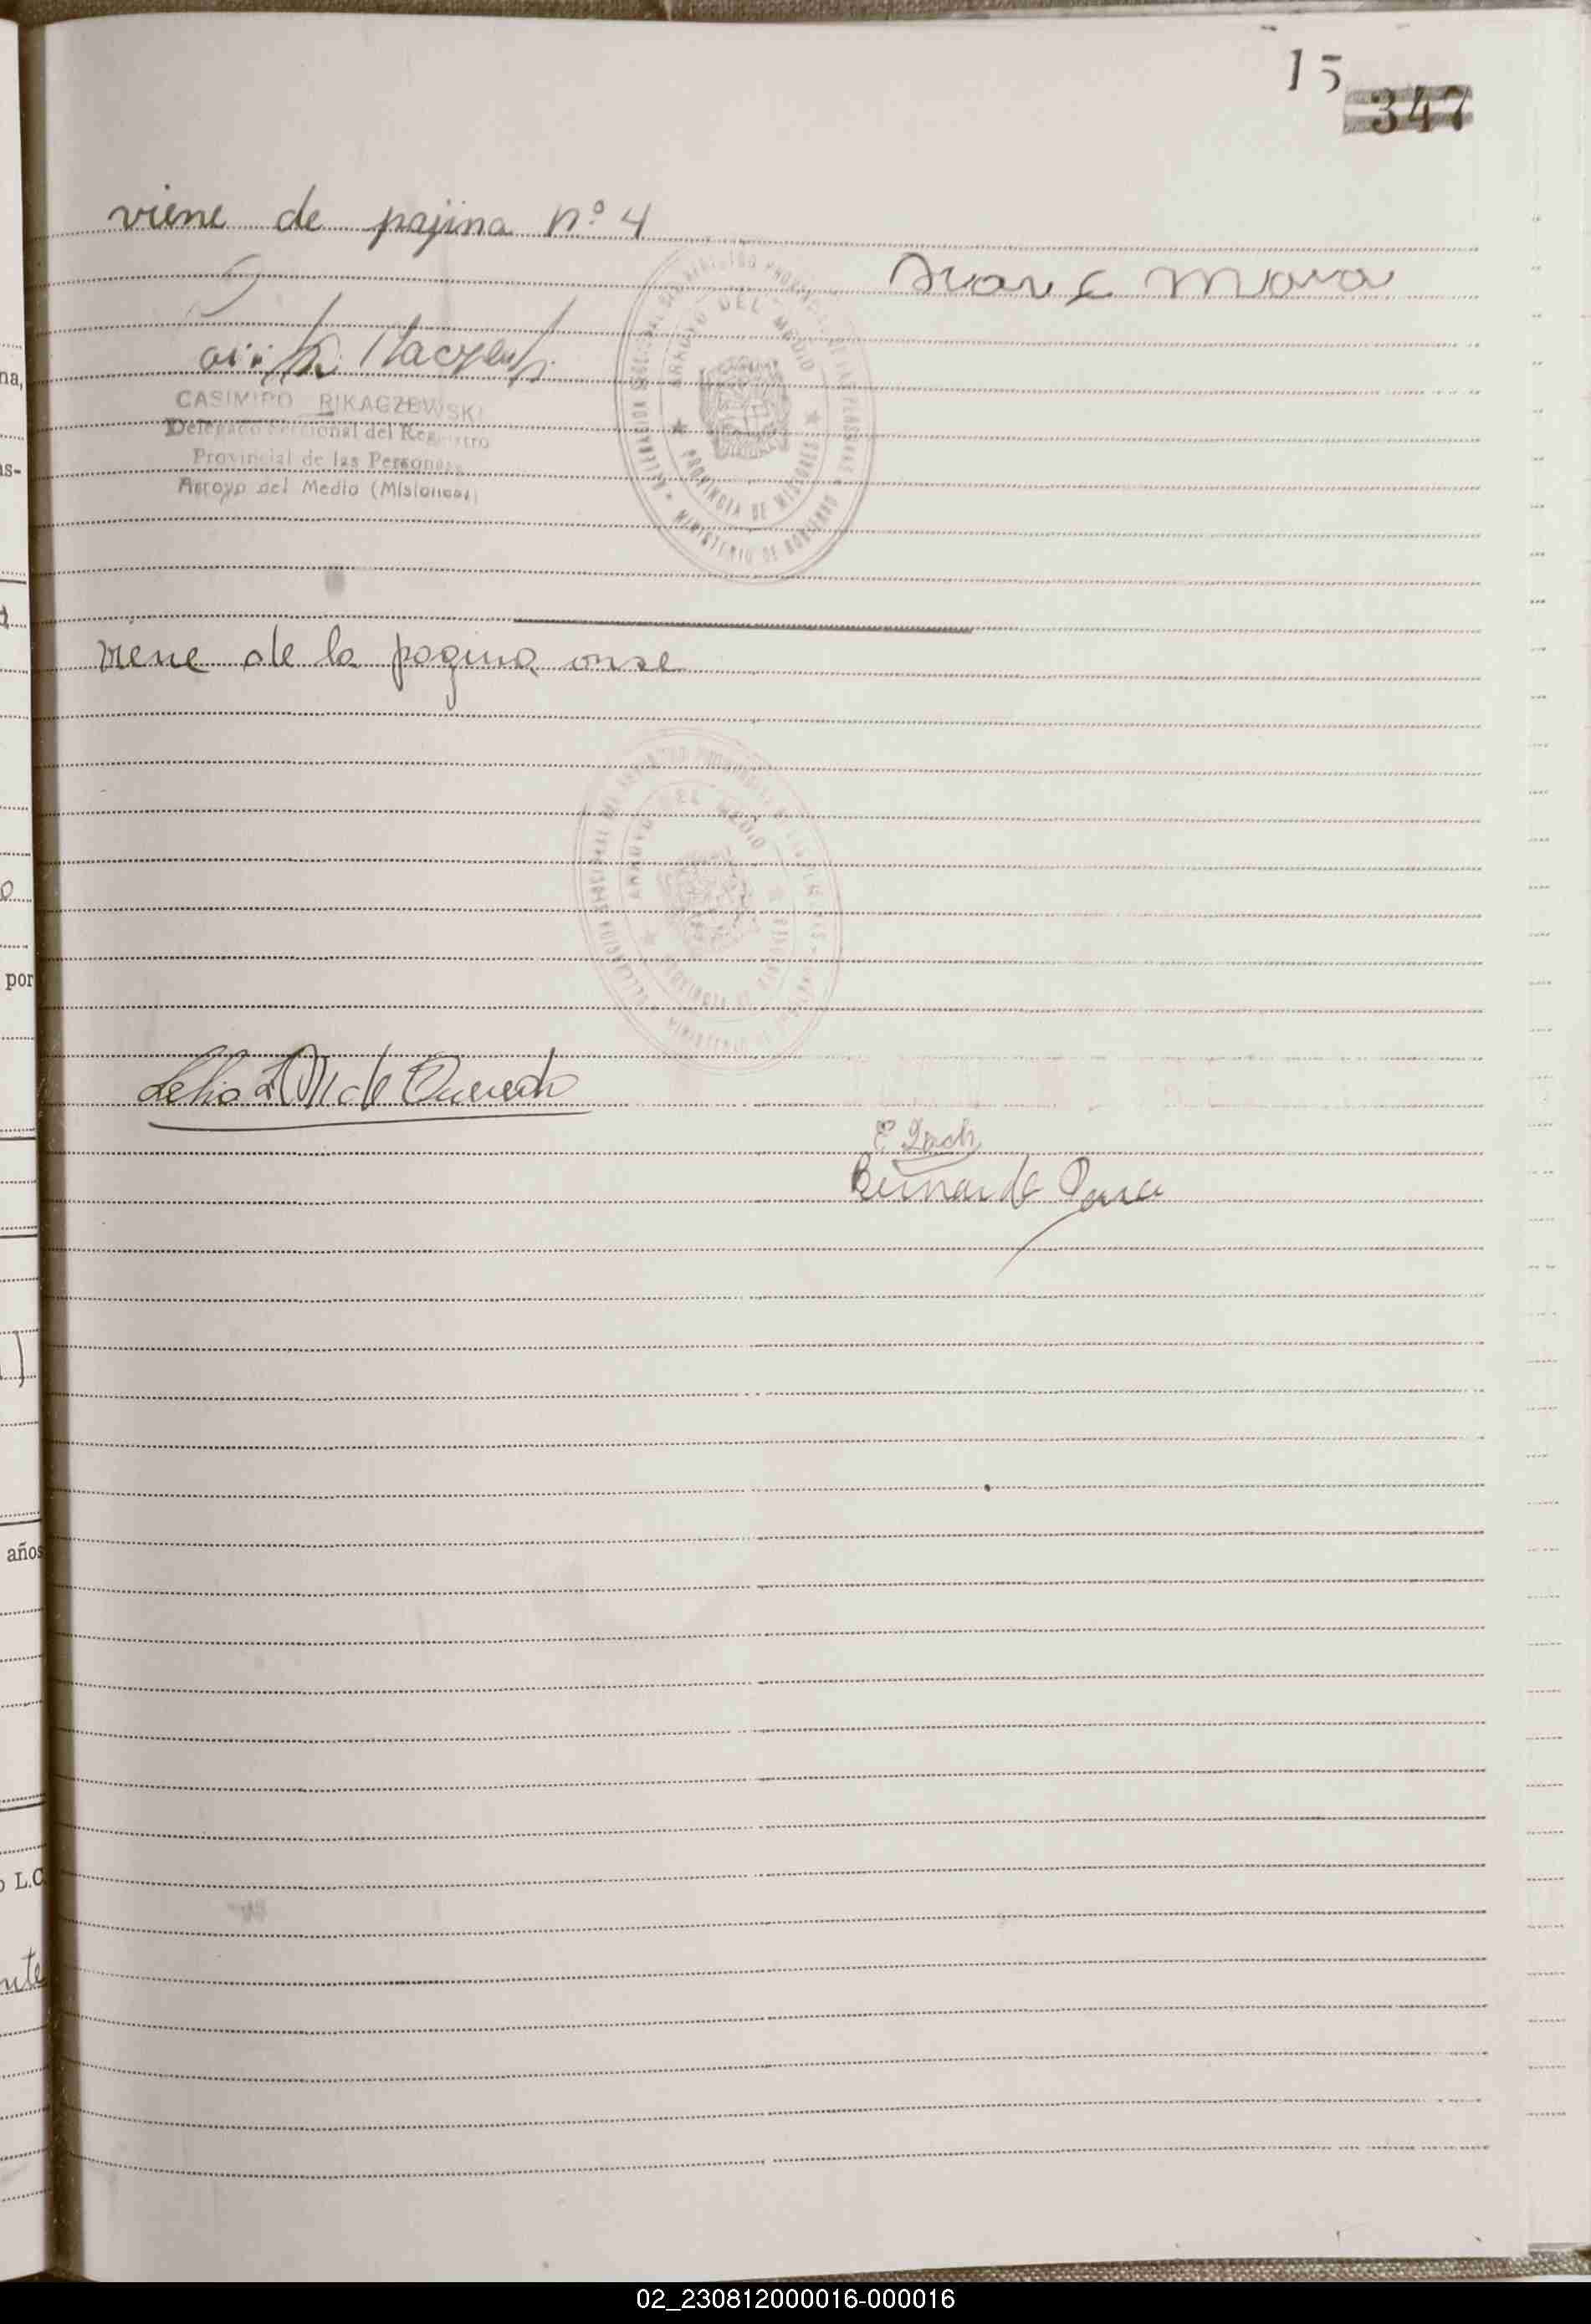 15
347
viene de pajina nº 4
Juan C Mora
CASIMIRO RIKACZEWSKI
Delegado Seccional del Registro
Provincial de las Personas
Arroyo del Medio (Misiones)
DELEGACION SECCIONAL DEL REGISTRO PROVINCIAL DE LAS PERSONAS • MINISTERIO DE GOBIERNO •
ARROYO DEL MEDIO
PROVINCIA DE MISIONES
viene de la pagina onse
DELEGACION SECCIONAL DEL REGISTRO PROVINCIAL DE LAS PERSONAS • MINISTERIO DE
ARROYO DEL MEDIO
PROVINCIA DE MISIONES
de
Bernarda
na,
as-
por
años
L.C.
nte
02_230812000016-000016